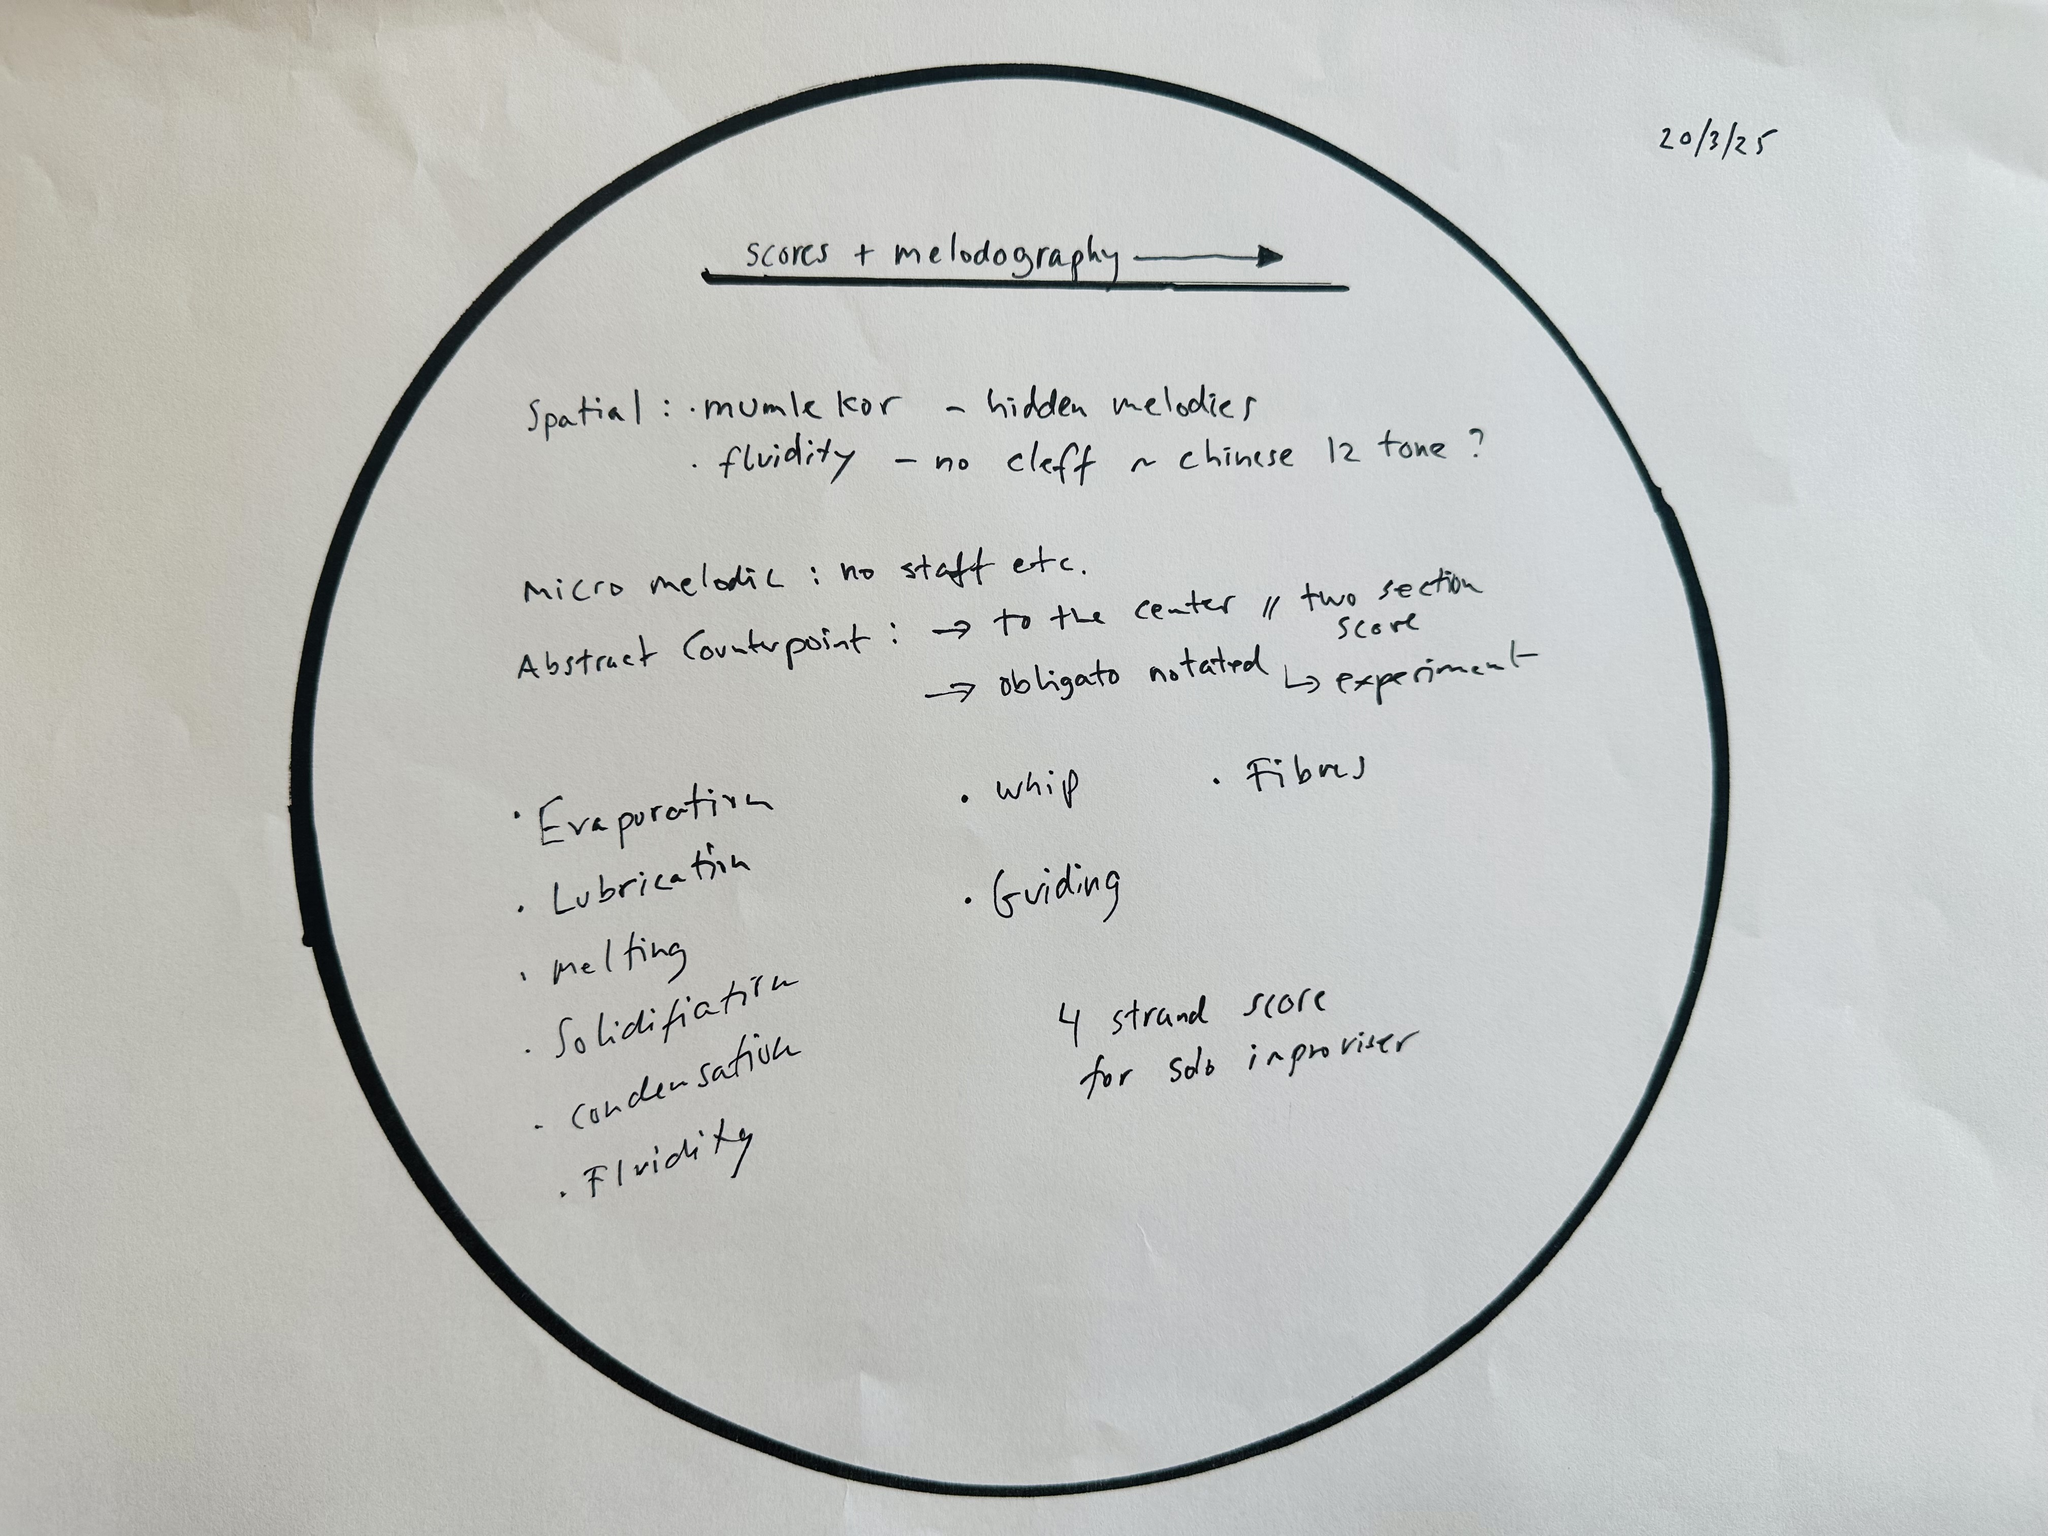 20/3/25
scores + melodography →
Spatial : · mumle kor – hidden melodies
· fluidity – no cleff ~ chinese 12 tone ?
Micro melodic : no staff etc.
Abstract Counterpoint : → to the center // two section score
→ obligato notated ↳ experiment
· Evaporation
· Lubrication
· melting
· Solidifiation
· condensation
· Fluidity
· whip
· Guiding
· Fibres
4 strand score
for solo improviser